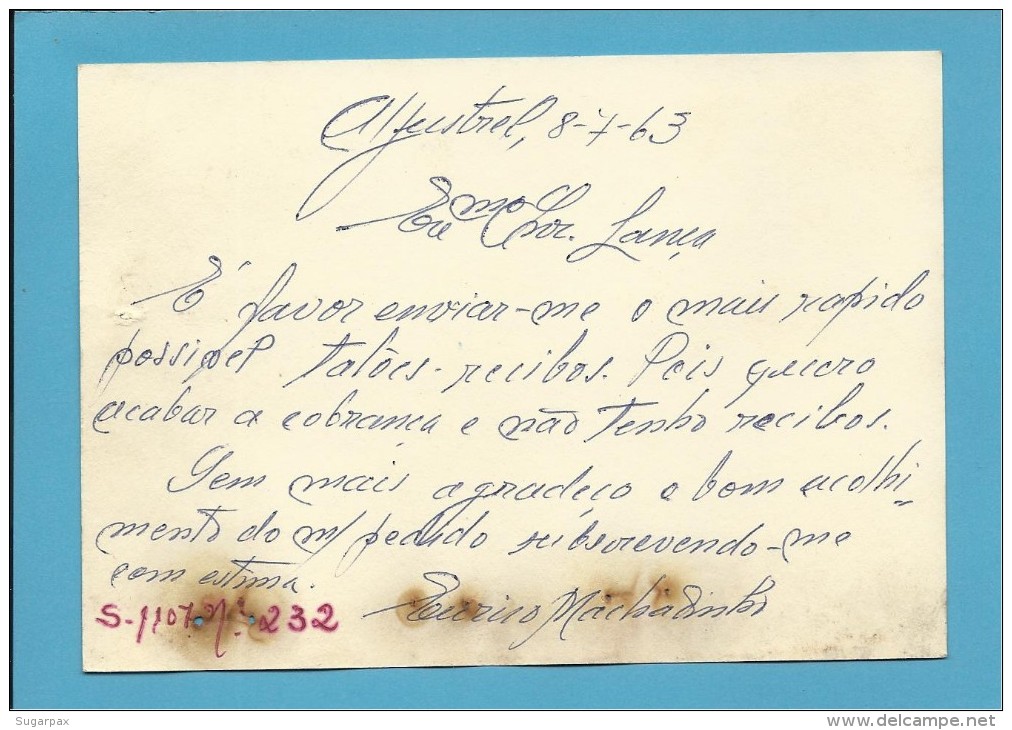 Aljustrel, 8-7-63
Exmo Snr. Lança
É favor enviar-me o mais rapido
possivel talões-recibos. Pois quero
acabar a cobrança e não tenho recibos.
Sem mais agradeço o bom acolhi=
mento do m/ pedido subscrevendo-me
com estima.
Eurico Machadinho
232
Sugarpax
www.delcampe.net